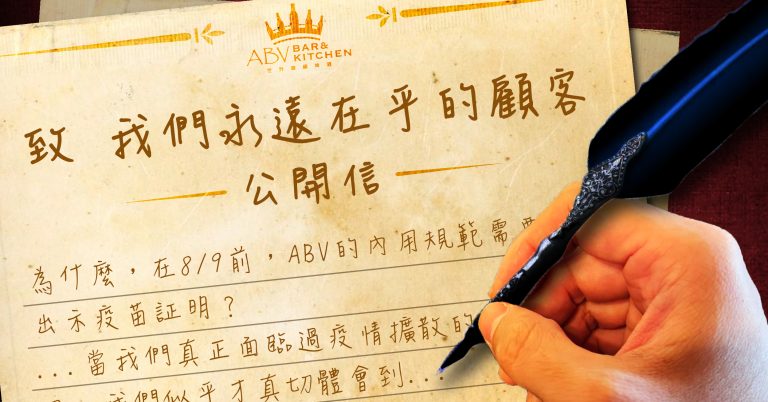 ABV BAR& KITCHEN
致 我們永遠在乎的顧客
公開信
為什麼，在8/9前，ABV的內用規範需
出示疫苗証明？
...當我們真正面臨過疫情擴散的
我們似乎才真切體會到...